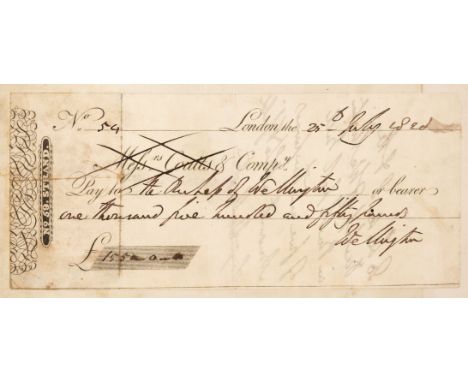 No 54 London, the 25th July 1828
Messrs Coutts & Compy.
Pay to the Duchess of Wellington or bearer
one thousand five hundred and fifty pounds
Wellington
£ 1550
No 59, STRAND.